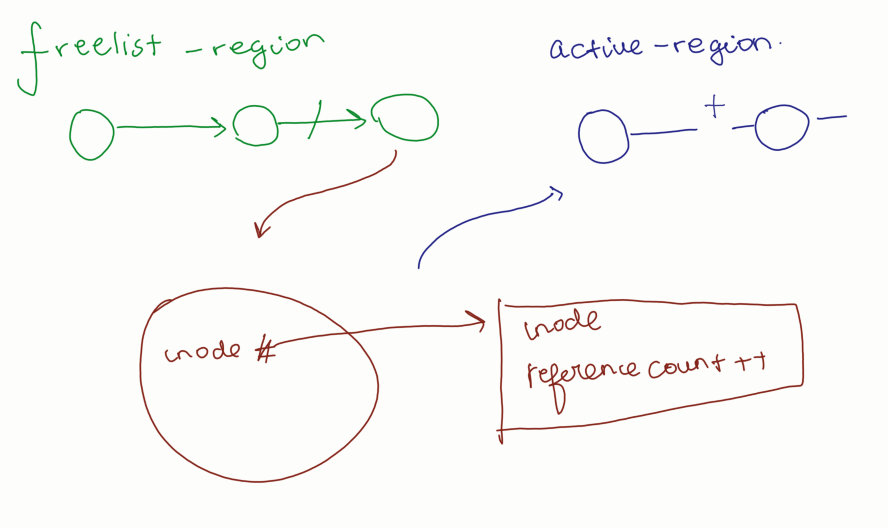 freelist - region
active - region.
+
inode #
inode
reference count ++